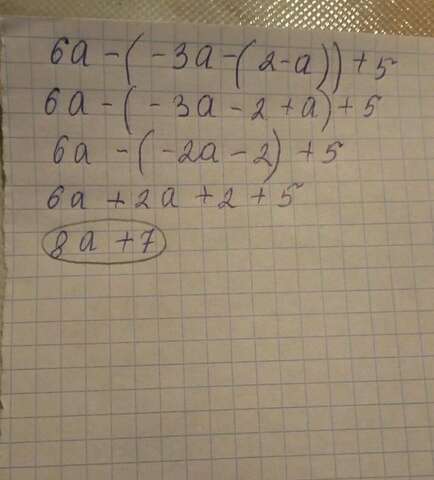 6a - (-3a - (2-a)) + 5
6a - (-3a - 2 + a) + 5
6a - (-2a - 2) + 5
6a + 2a + 2 + 5
8a + 7